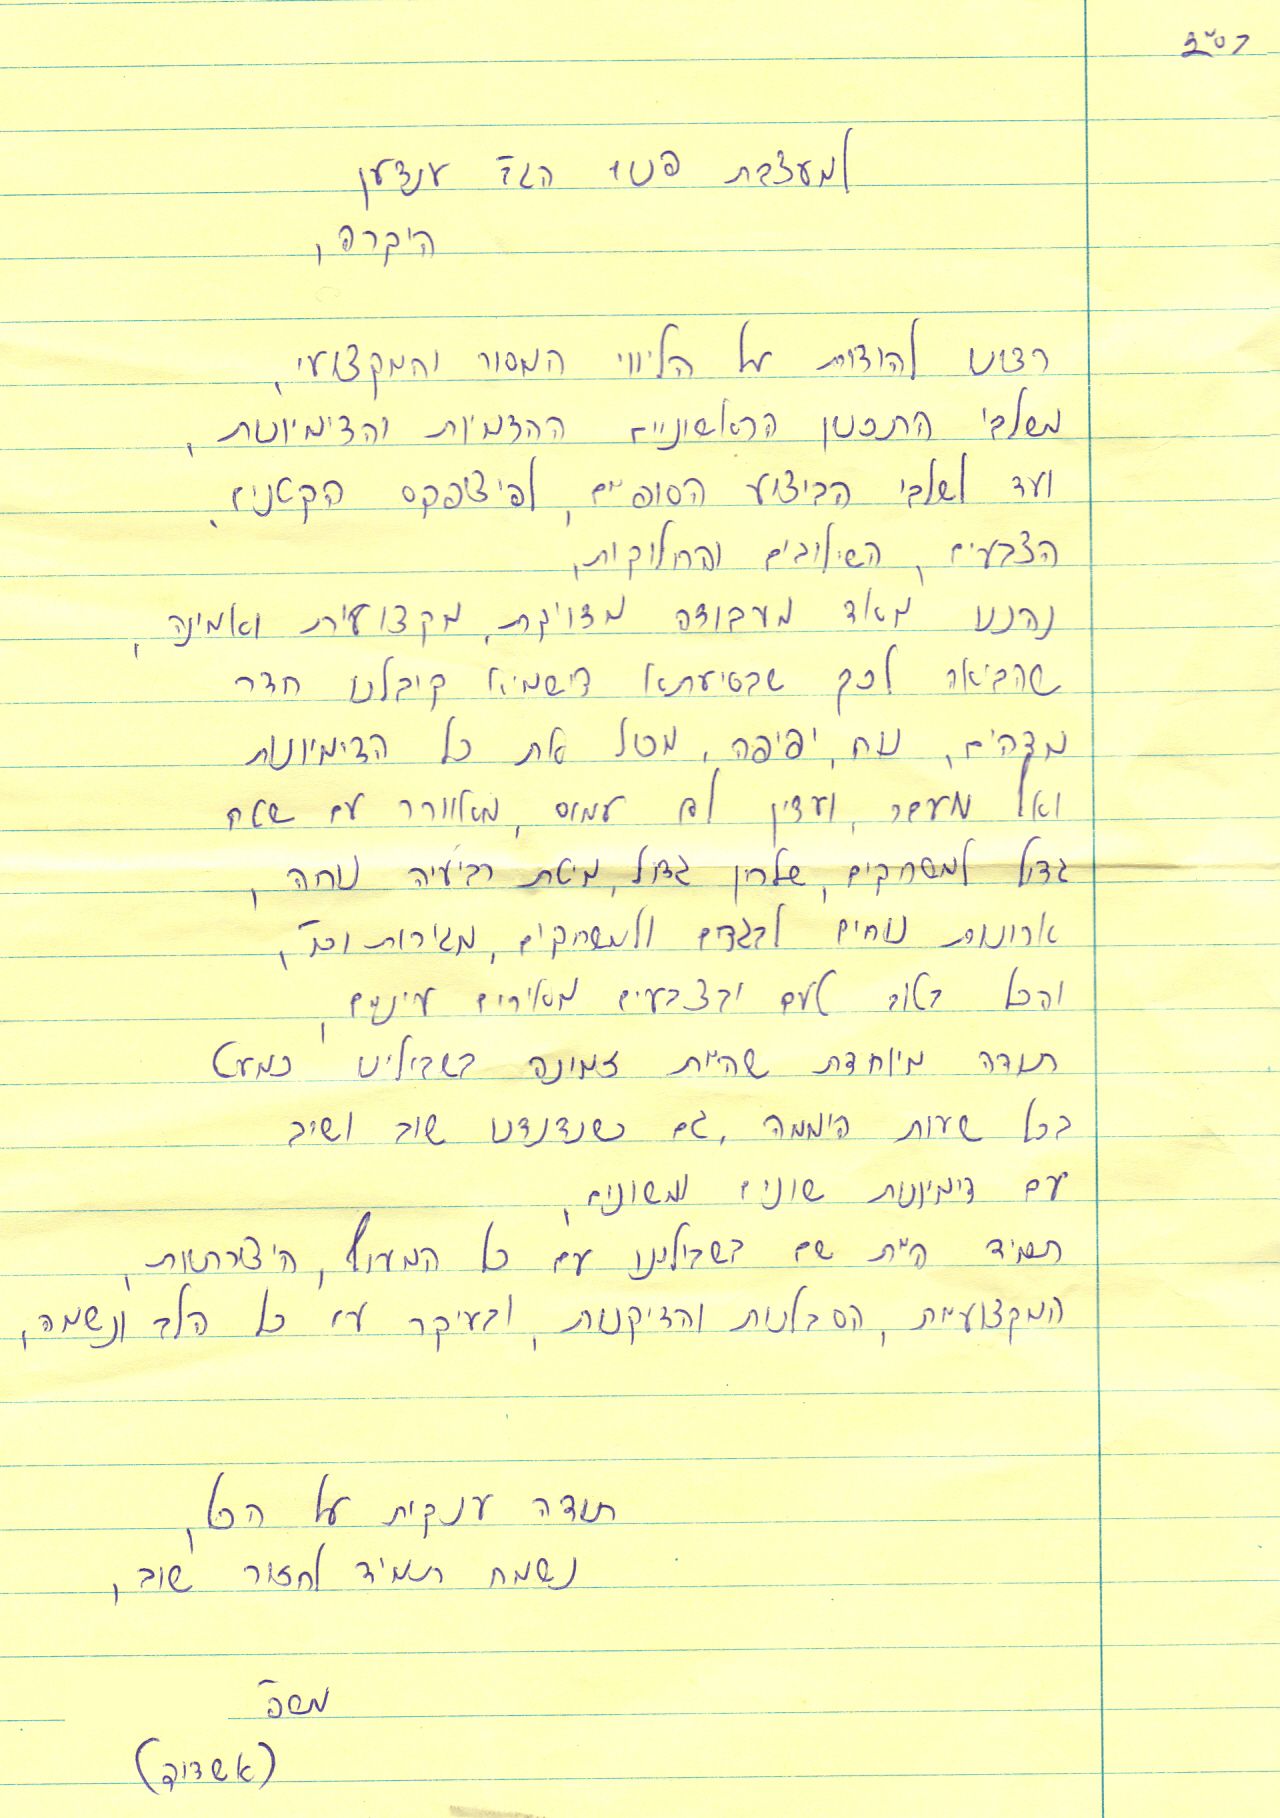 בס"ד
למעצבת פנים הגב' ענדען
היקרה,
רצינו להודות על הליווי המסור והמקצועי,
משלבי התכנון הראשוניים ההדמיות והדימיונות,
ועד לשלבי הביצוע הסופיים, לפיצ'פקס הקטנים,
הצבעים, השילובים והחלוקות,
נהננו מאוד מעבודה מדויקת, מקצועית ואמינה,
שהביאה לכך שבסיעתא דישמיא קיבלנו חדר
מדהים, נוח, יפיפה, מנצל את כל הדימיונות
ואל מעבר, ועדין לא עמוס, מאוורר עם שטח
גדול למשחקים, שולחן גדול, מיטת רביעיה נוחה,
ארונות נוחים לבגדים ולמשחקים, מגירות וכו',
והכל בטוב טעם ובצבעים מאירים עיניים,
תודה מיוחדת שהיית זמינה בשבילינו כמעט
בכל שעות היממה, גם כשנדנדנו שוב ושוב
עם דימיונות שונים ומשונים,
תמיד היית שם בשבילנו עם כל המעוף, היצירתיות,
המקצועיות, הסבלנות והדיקנות, ובעיקר עם כל הלב ונשמה,
תודה ענקית על הכל,
נשמח תמיד לחזור שוב,
משפ'
(אשדוד)